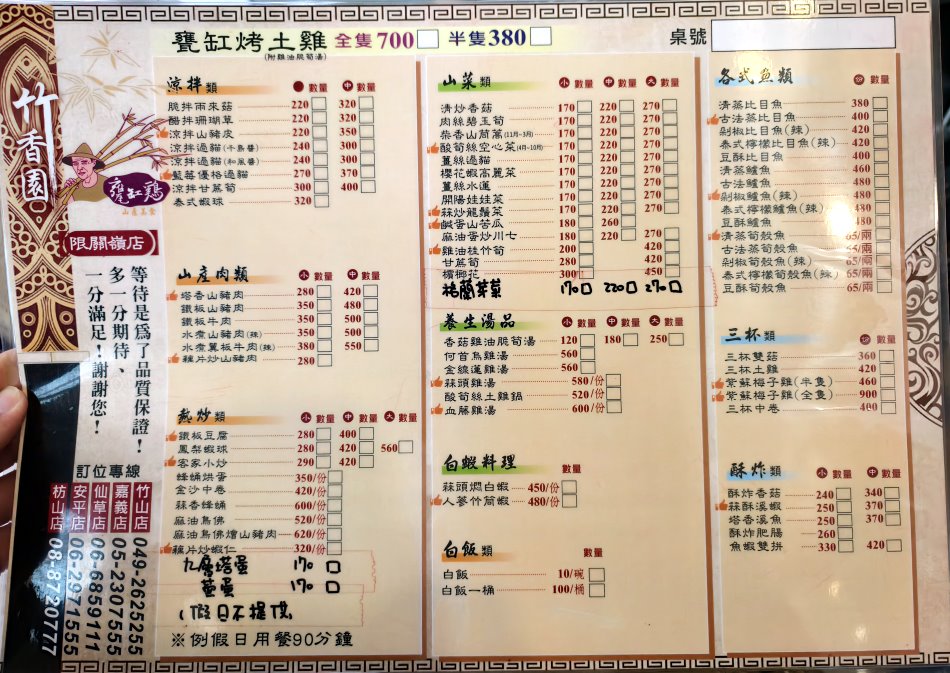 甕缸烤土雞 全隻700 半隻380 桌號
(附雞油脆筍湯)
竹香園
甕缸鷄
山產美食
限關嶺店
等待是為了品質保證！
多一分期待、
一分滿足！謝謝您！
訂位專線
竹山店 049-2625255
嘉義店 05-2307555
仙草店 06-6859111
安平店 06-2971555
枋山店 08-8720777
涼拌類 數量 中 數量
脆拌雨來菇 220 320
醋拌珊瑚草 220 320
涼拌山豬皮 220 350
涼拌過貓(千島醬) 240 300
涼拌過貓(和風醬) 240 300
藍莓優格過貓 270 370
涼拌甘蔗筍 300 400
泰式蝦球 320
山產肉類 小 數量 中 數量
塔香山豬肉 280 420
鐵板山豬肉 350 480
鐵板牛肉 350 500
水煮山豬肉(辣) 350 500
水煮翼板牛肉(辣) 380 550
蒜片炒山豬肉 280
熱炒類 小 數量 中 數量 大 數量
鐵板豆腐 280 400
鳳梨蝦球 280 420 560
客家小炒 290 420
蜂蛹烘蛋 350/份
金沙中卷 420/份
蒜香蜂蛹 600/份
麻油鳥佛 520/份
麻油鳥佛燴山豬肉 620/份
蘿片炒蝦仁 320/份
九層塔蛋 170
蔥蛋 170
(假日不提供
※例假日用餐90分鐘
山菜類 小 數量 中 數量 大 數量
清炒香菇 170 220 270
肉絲碧玉筍 170 220 270
柴香山茼蒿(11月~3月) 170 220 270
酸筍絲空心菜(4月~10月) 170 220 270
薑絲過貓 170 220 270
櫻花蝦高麗菜 170 220 270
薑絲水蓮 170 220 270
開陽娃娃菜 170 220 270
蒜炒龍鬚菜 170 220 270
鹹蛋山苦瓜 180 260
麻油蛋炒川七 180 220 270
雞油桂竹筍 200 420
甘蔗筍 280 420
檳榔花 300 450
格蘭芽菜 170 220 270
養生湯品 小 數量 中 數量 大 數量
香菇雞油脆筍湯 120 180 250
何首烏雞湯 560
金線蓮雞湯 560
蒜頭雞湯 580/份
酸筍絲土雞鍋 520/份
血藤雞湯 600/份
白蝦料理 數量
蒜頭燜白蝦 450/份
人蔘竹筒蝦 480/份
白飯類 數量
白飯 10/碗
白飯一桶 100/桶
各式魚類 份 數量
清蒸比目魚 380
古法蒸比目魚 400
剁椒比目魚(辣) 420
泰式檸檬比目魚(辣) 420
豆酥比目魚 400
清蒸鱸魚 460
古法鱸魚 480
剁椒鱸魚(辣) 480
泰式檸檬鱸魚(辣) 480
豆酥鱸魚 480
清蒸筍殼魚 65/兩
古法蒸筍殼魚 65/兩
剁椒筍殼魚(辣) 65/兩
泰式檸檬筍殼魚(辣) 65/兩
豆酥筍殼魚 65/兩
三杯類 份 數量
三杯雙菇 360
三杯土雞 420
紫蘇梅子雞(半隻) 460
紫蘇梅子雞(全隻) 900
三杯中卷 400
酥炸類 小 數量 中 數量
酥炸香菇 240 340
蒜酥溪蝦 250 370
塔香溪魚 250 370
酥炸肥腸 260
魚蝦雙拼 330 420